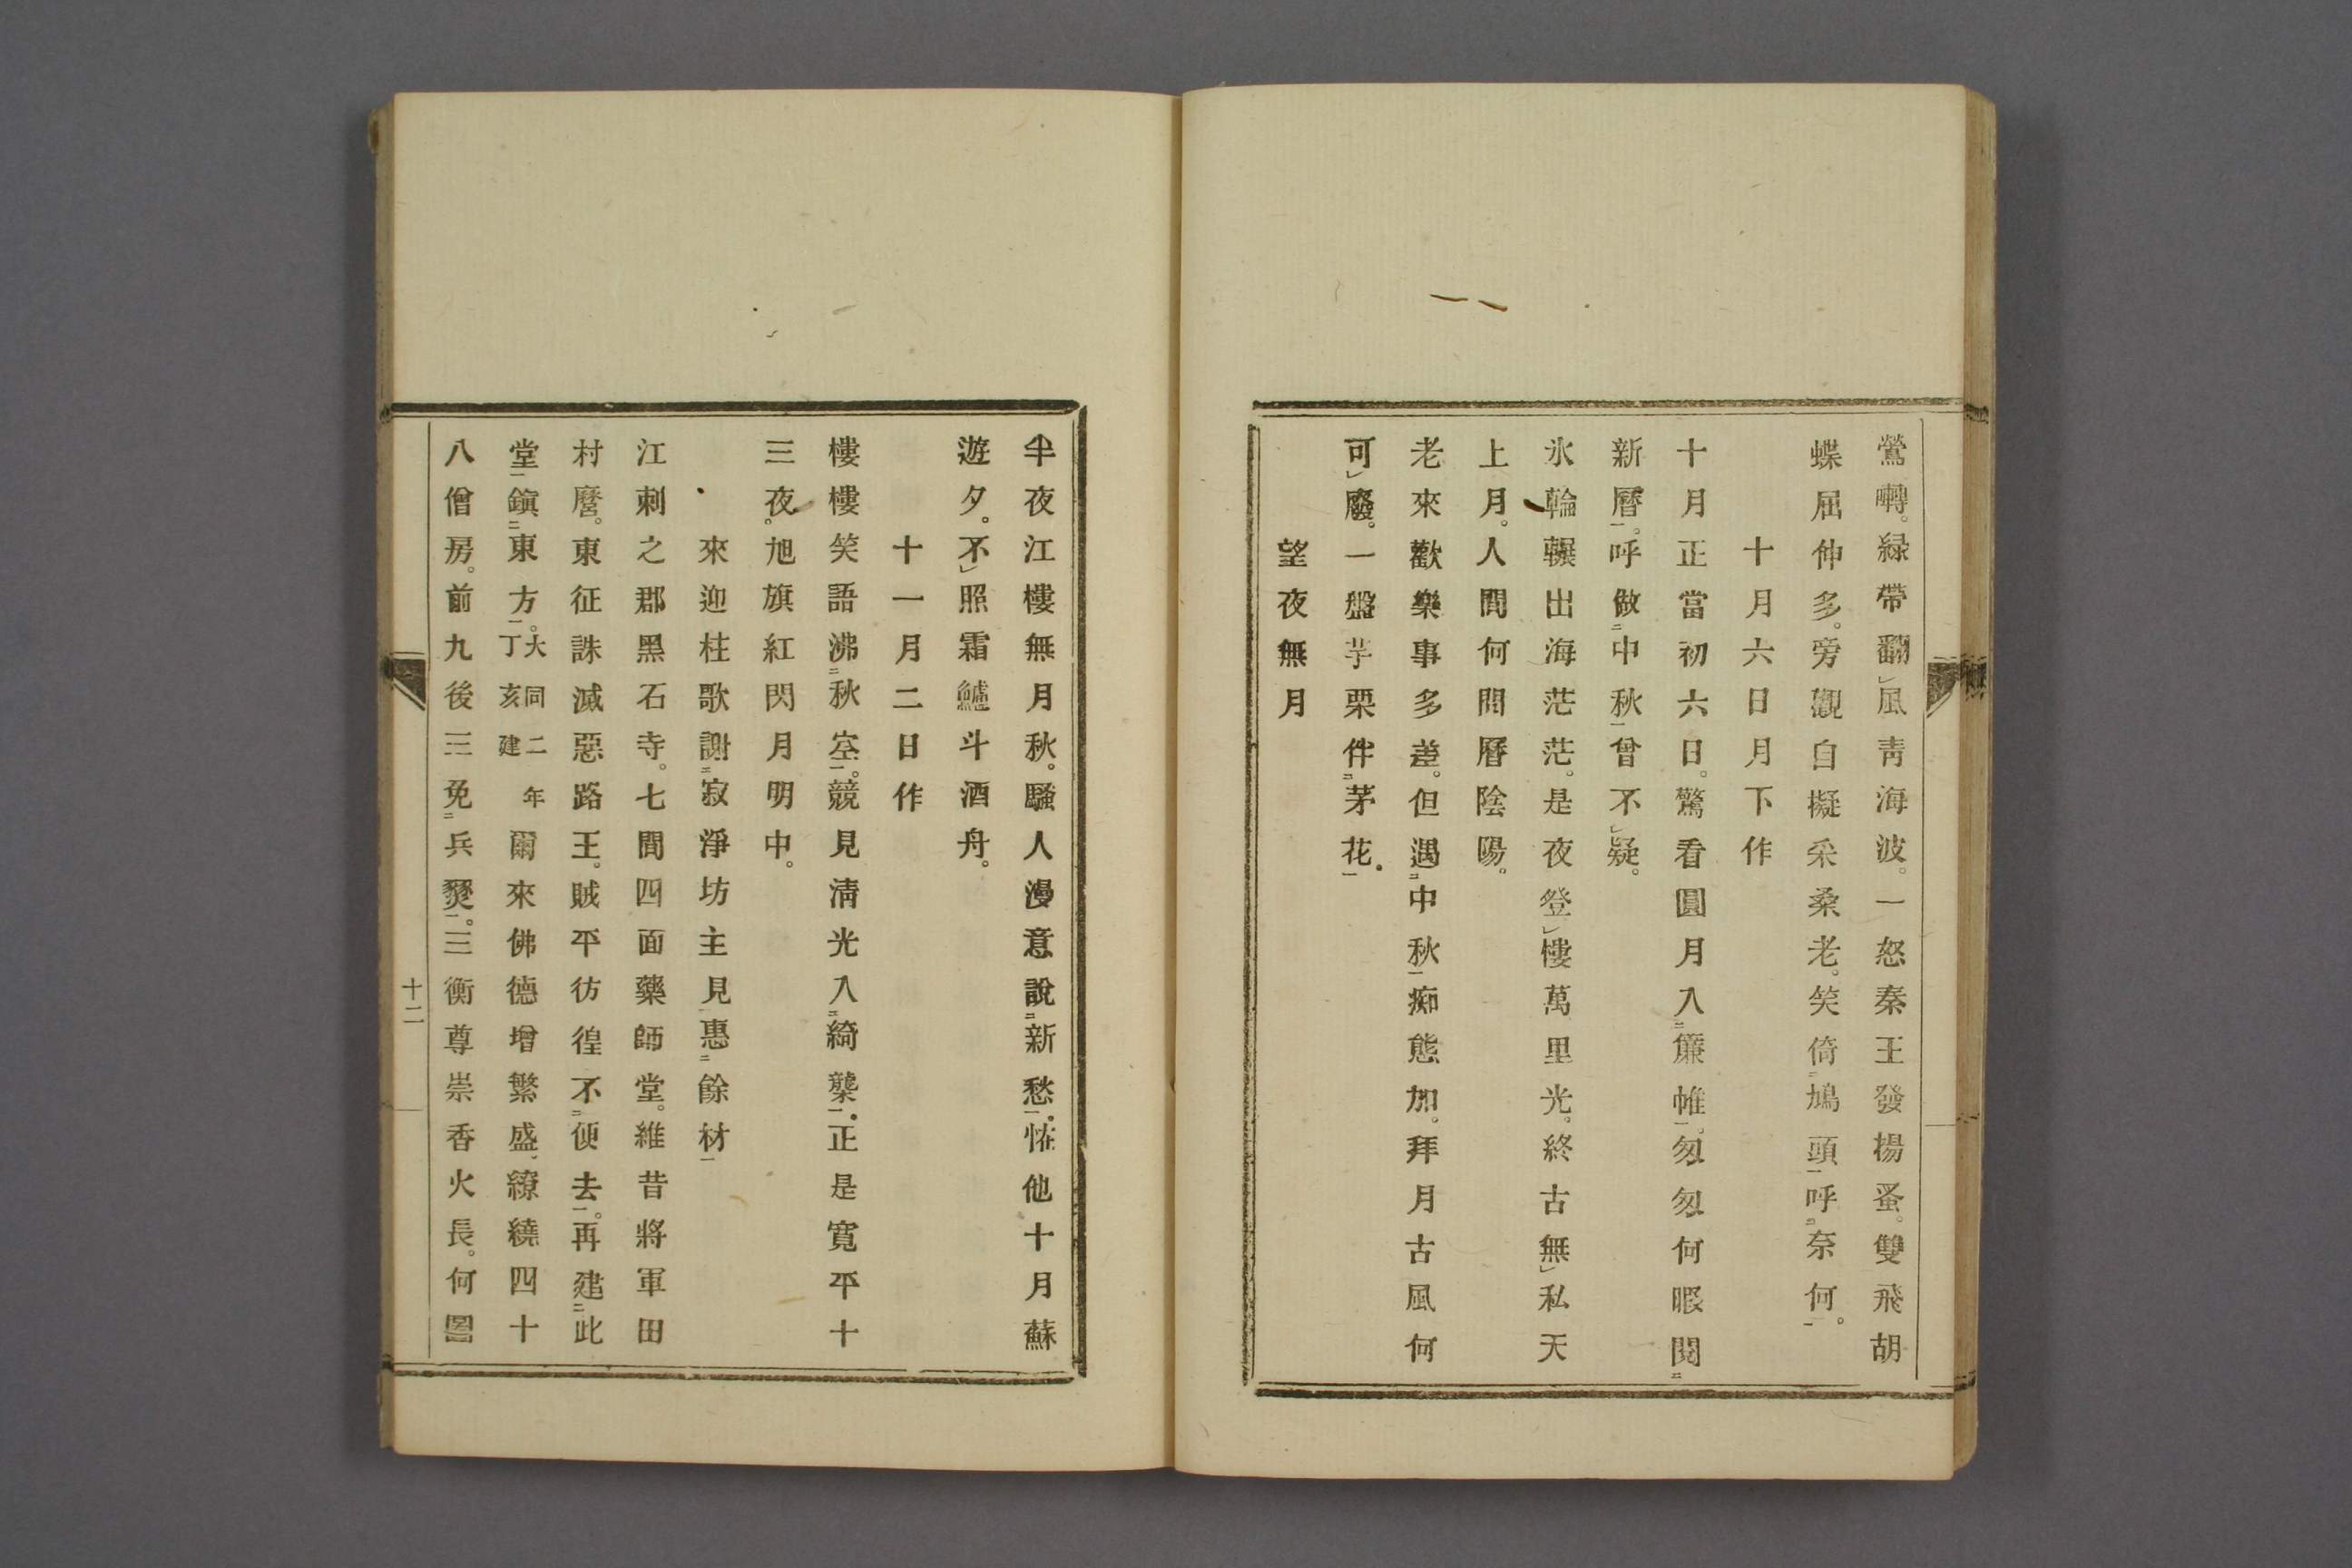 鶯囀。緑帶翻風青海波。一怒秦王發揚蚤。雙飛胡
蝶屈伸多。旁觀自擬采桑老。笑倚鳩頭呼奈何。
十月六日月下作
十月正當初六日。驚看圓月入簾帷。匆匆何暇閲
新曆。呼做中秋曾不疑。
氷輪輾出海茫茫。是夜登樓萬里光。終古無私天
上月。人間何問曆陰陽。
老來歡樂事多差。但遇中秋痴態加。拜月古風何
可廢。一盤芋栗伴茅花。
望夜無月
半夜江樓無月秋。騷人漫意説新愁。恠他十月蘇
遊夕。不照霜鱸斗酒舟。
十一月二日作
樓樓笑語沸秋空。競見清光入綺櫳。正是寛平十
三夜。旭旗紅閃月明中。
來迎柱歌謝寂淨坊主見惠餘材
江刺之郡黑石寺。七間四面藥師堂。維昔將軍田
村麿。東征誅滅惡路王。賊平彷徨不便去。再建此
堂鎭東方。大同二年丁亥建爾來佛德增繁盛、繚繞四十
八僧房。前九後三免兵燹。三衡尊崇香火長。何圖
十二